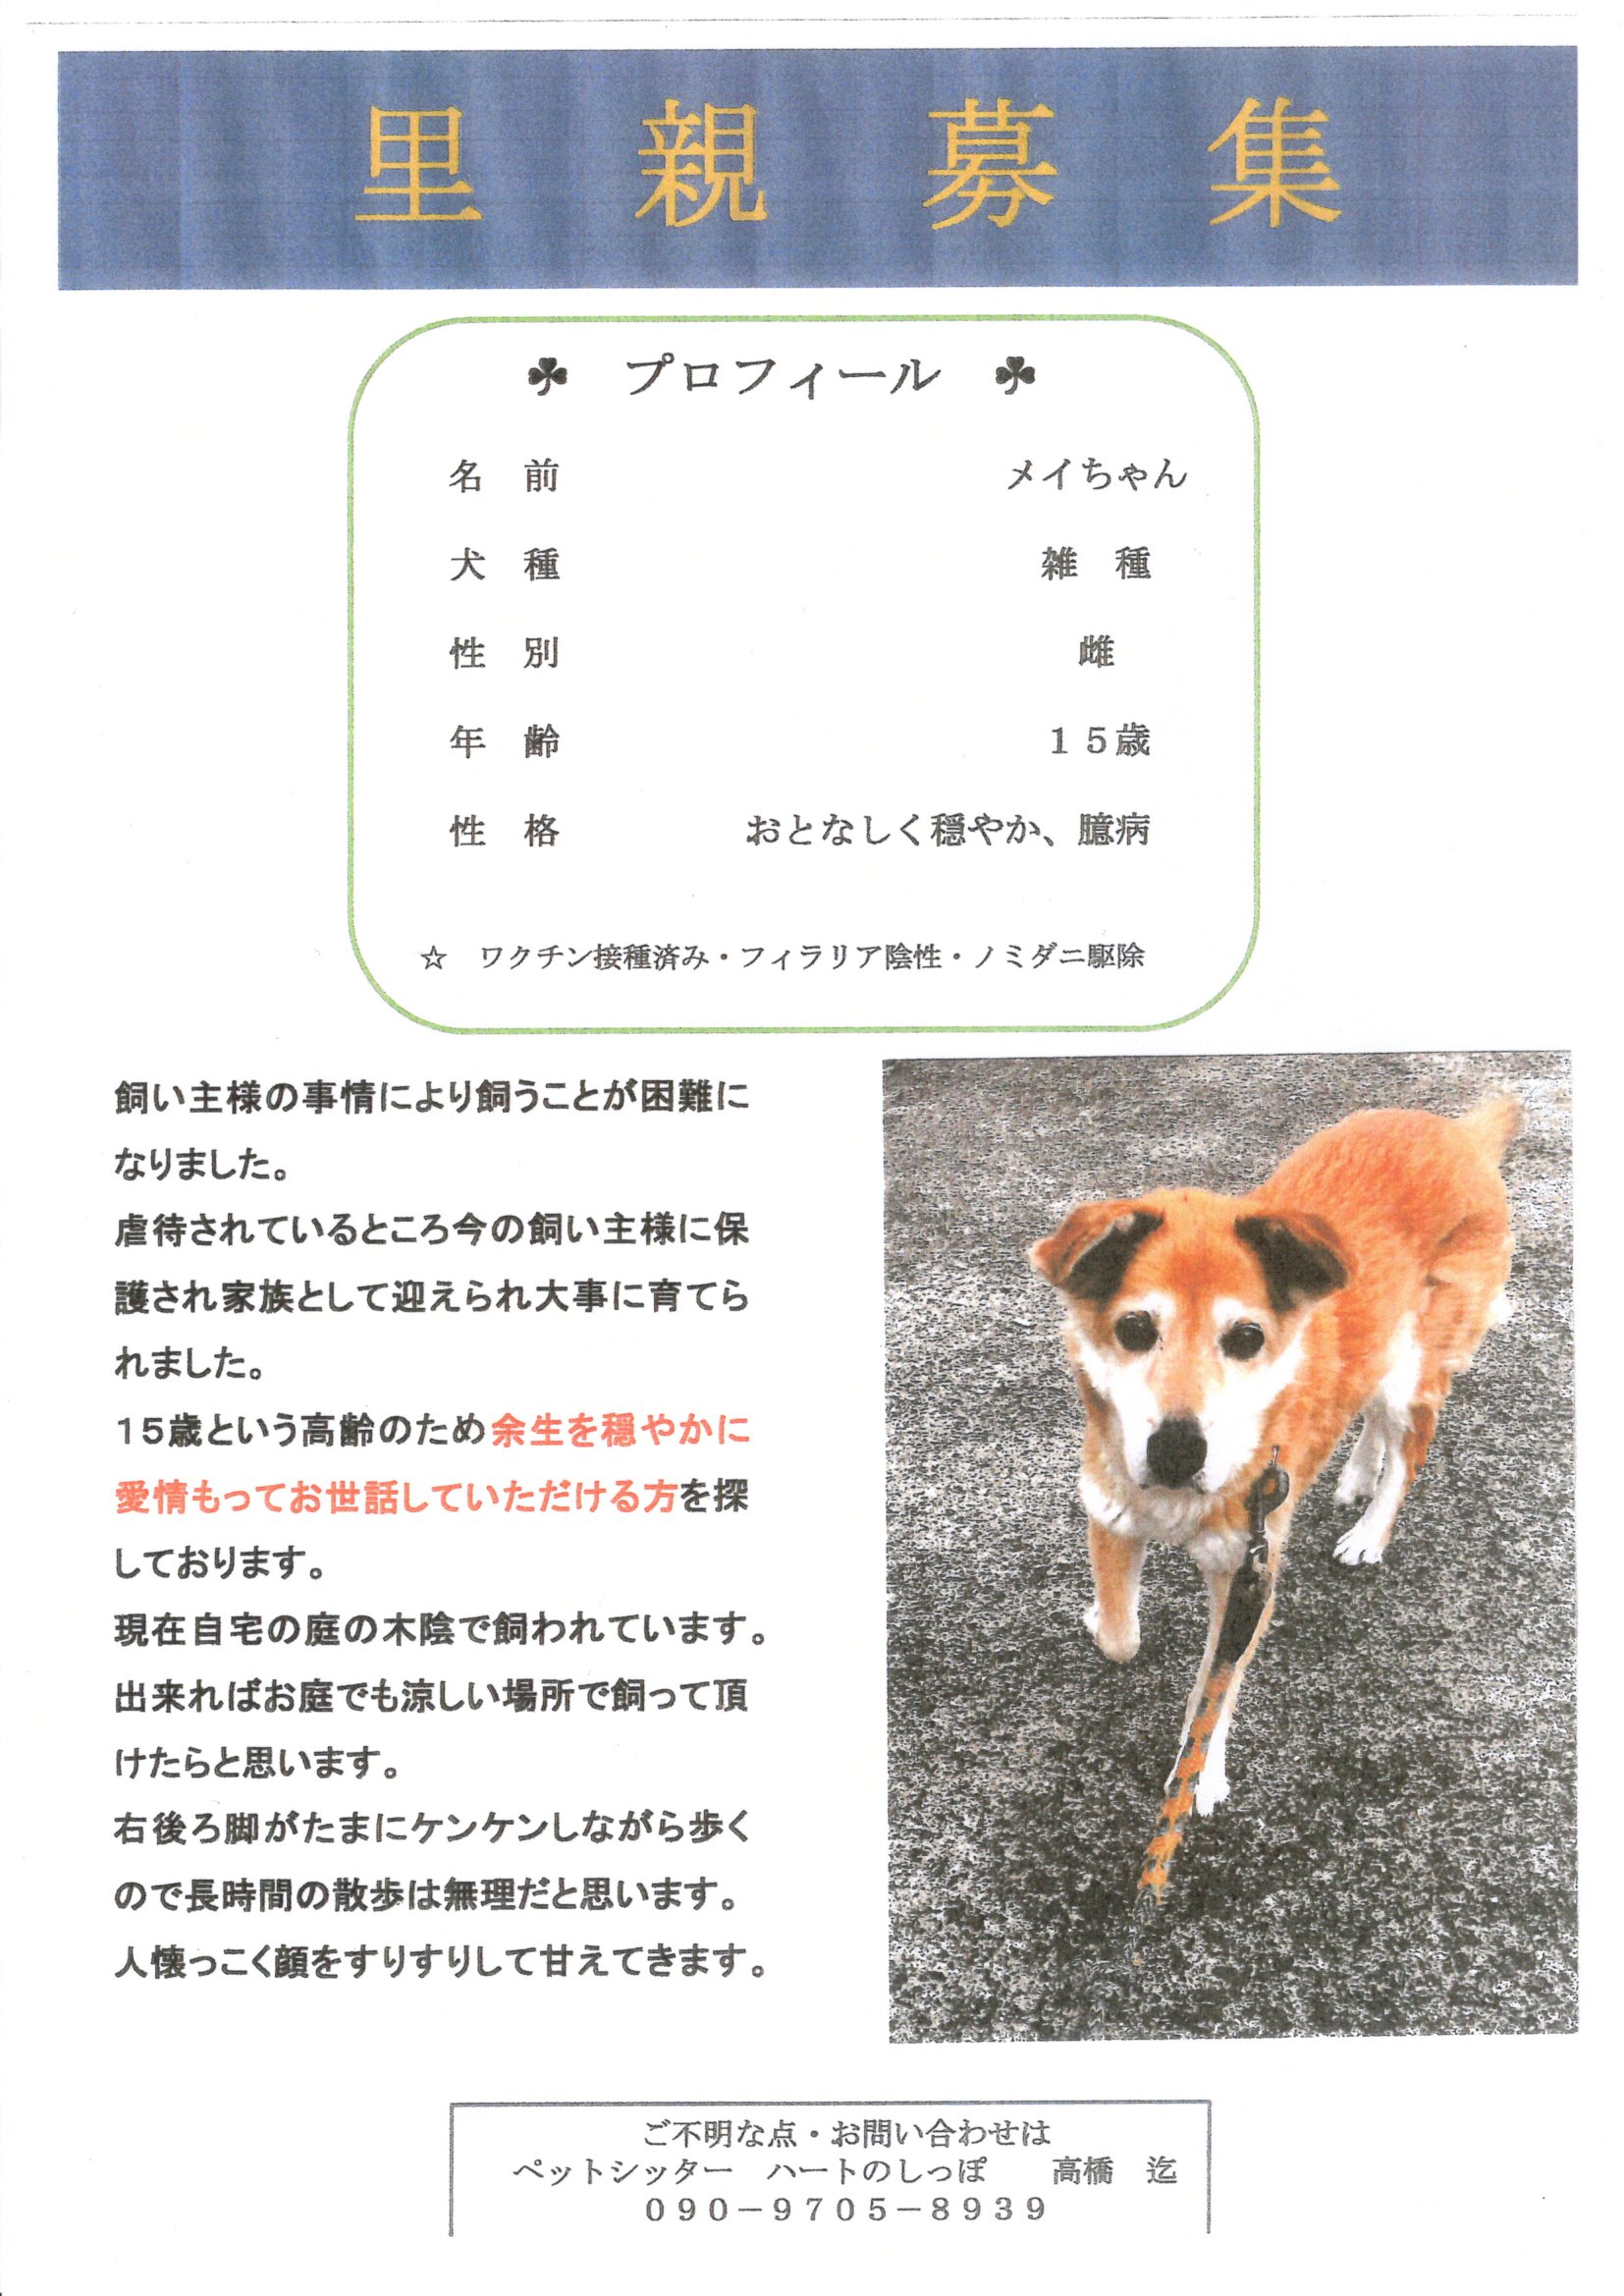 里親募集
♣ プロフィール ♣
名前 メイちゃん
犬種 雑種
性別 雌
年齢 15歳
性格 おとなしく穏やか、臆病
☆ ワクチン接種済み・フィラリア陰性・ノミダニ駆除
飼い主様の事情により飼うことが困難に
なりました。
虐待されているところ今の飼い主様に保
護され家族として迎えられ大事に育てら
れました。
15歳という高齢のため余生を穏やかに
愛情もってお世話していただける方を探
しております。
現在自宅の庭の木陰で飼われています。
出来ればお庭でも涼しい場所で飼って頂
けたらと思います。
右後ろ脚がたまにケンケンしながら歩く
ので長時間の散歩は無理だと思います。
人懐っこく顔をすりすりして甘えてきます。
ご不明な点・お問い合わせは
ペットシッター ハートのしっぽ 高橋 迄
090－9705－8939